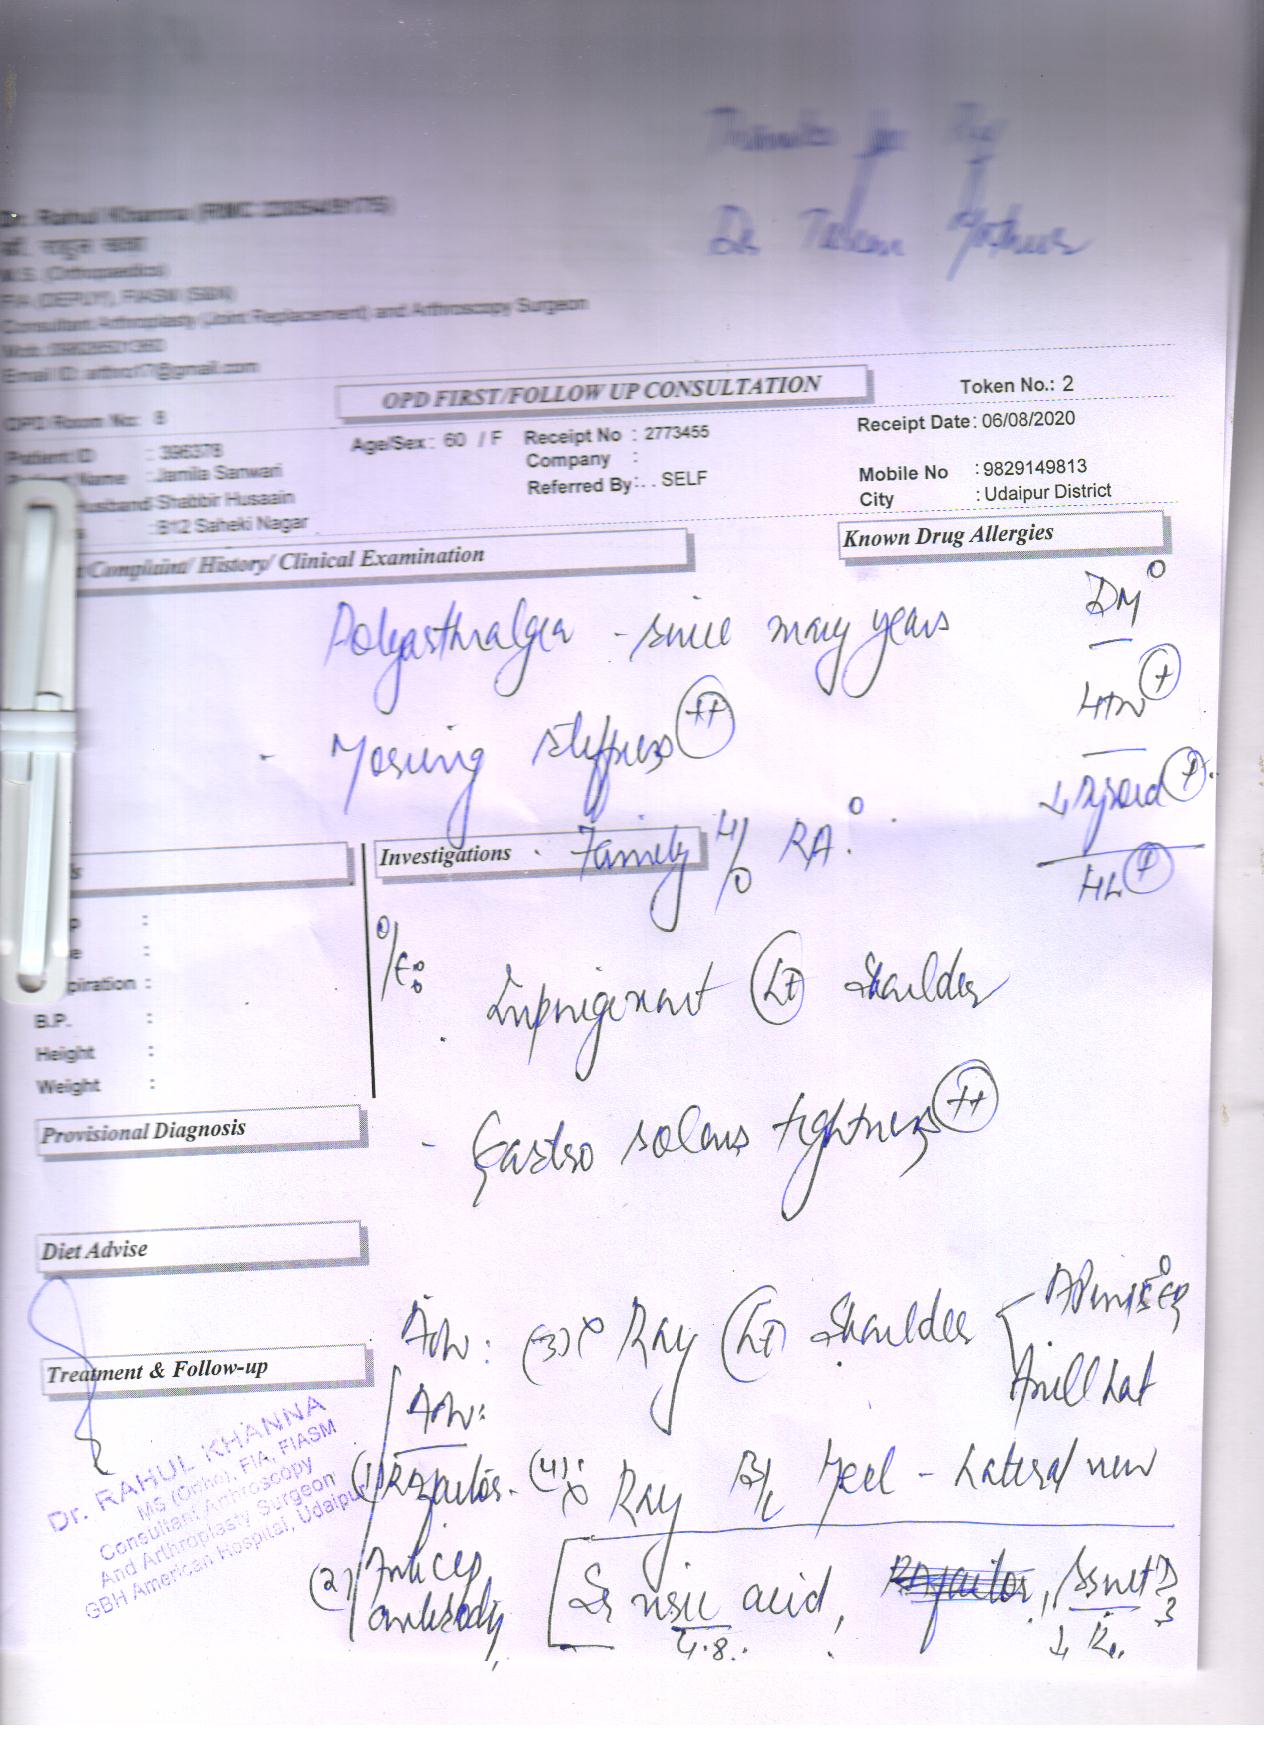 Thanks for
Dr. Rahul Khanna (RMC
डॉ. राहुल खन्ना
M.S. (Orthopaedics)
FIA (DEPUY), FIASM (SBK)
Consultant Arthroplasty (Joint Replacement) and Arthroscopy Surgeon
Email ID: arthro17@gmail.com
OPD FIRST/FOLLOW UP CONSULTATION
Token No.: 2
OPD Room No: 8
Age/Sex : 60 / F Receipt No : 2773455 Receipt Date : 06/08/2020
Patient ID : 396378
Company :
Name : Jamila Sanwari
Referred By: . . SELF
Mobile No : 9829149813
usband Shabbir Husaain
City : Udaipur District
: B12 Saheki Nagar
Complaint/ History/ Clinical Examination
Known Drug Allergies
Polyarthralgea - since many years
DM°
HTN +
- Morning stiffness ++
Thyroid +
Investigations
Family H/O RA°
HL +
piration :
O/E:
Impingement (Lt) Shoulder
B.P. :
Height :
Weight :
Provisional Diagnosis
- Gastro soleus tightness ++
Diet Advise
Adv: (3) X Ray (Lt) Shoulder
Axill Lat
Treatment & Follow-up
Adv:
(1) RA factor - (4) X Ray B/L Heel - Lateral view
(2) Anti CCP antibody,
Sr uric acid,
4.8
Dr. RAHUL KHANNA
MS (Ortho), FIA, FIASM
Consultant Arthroscopy
And Arthroplasty Surgeon
GBH American Hospital, Udaipur